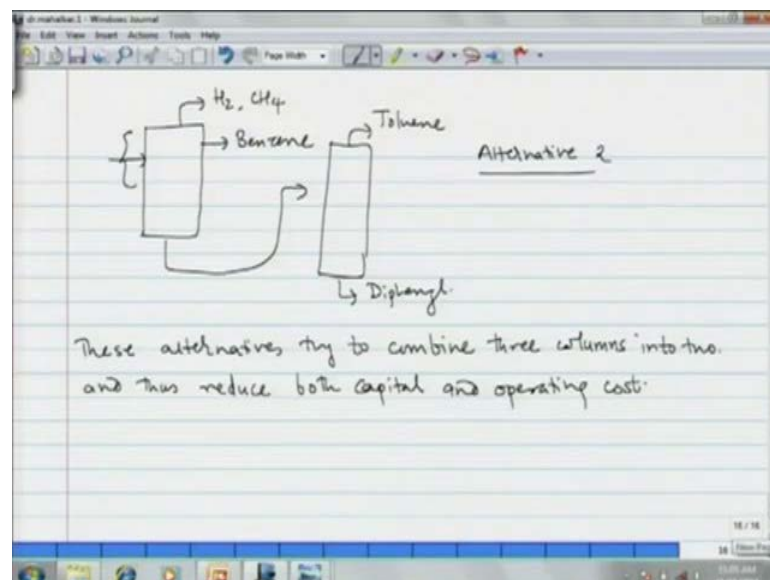 dr.mahalkar.1 - Windows Journal
File Edit View Insert Actions Tools Help
Page Width
H2, CH4
Benzene
Toluene
Alternative 2
Diphenyl.
These alternatives try to combine three columns into two.
and thus reduce both capital and operating cost.
16 / 16
16
New Pag
11:05 AM